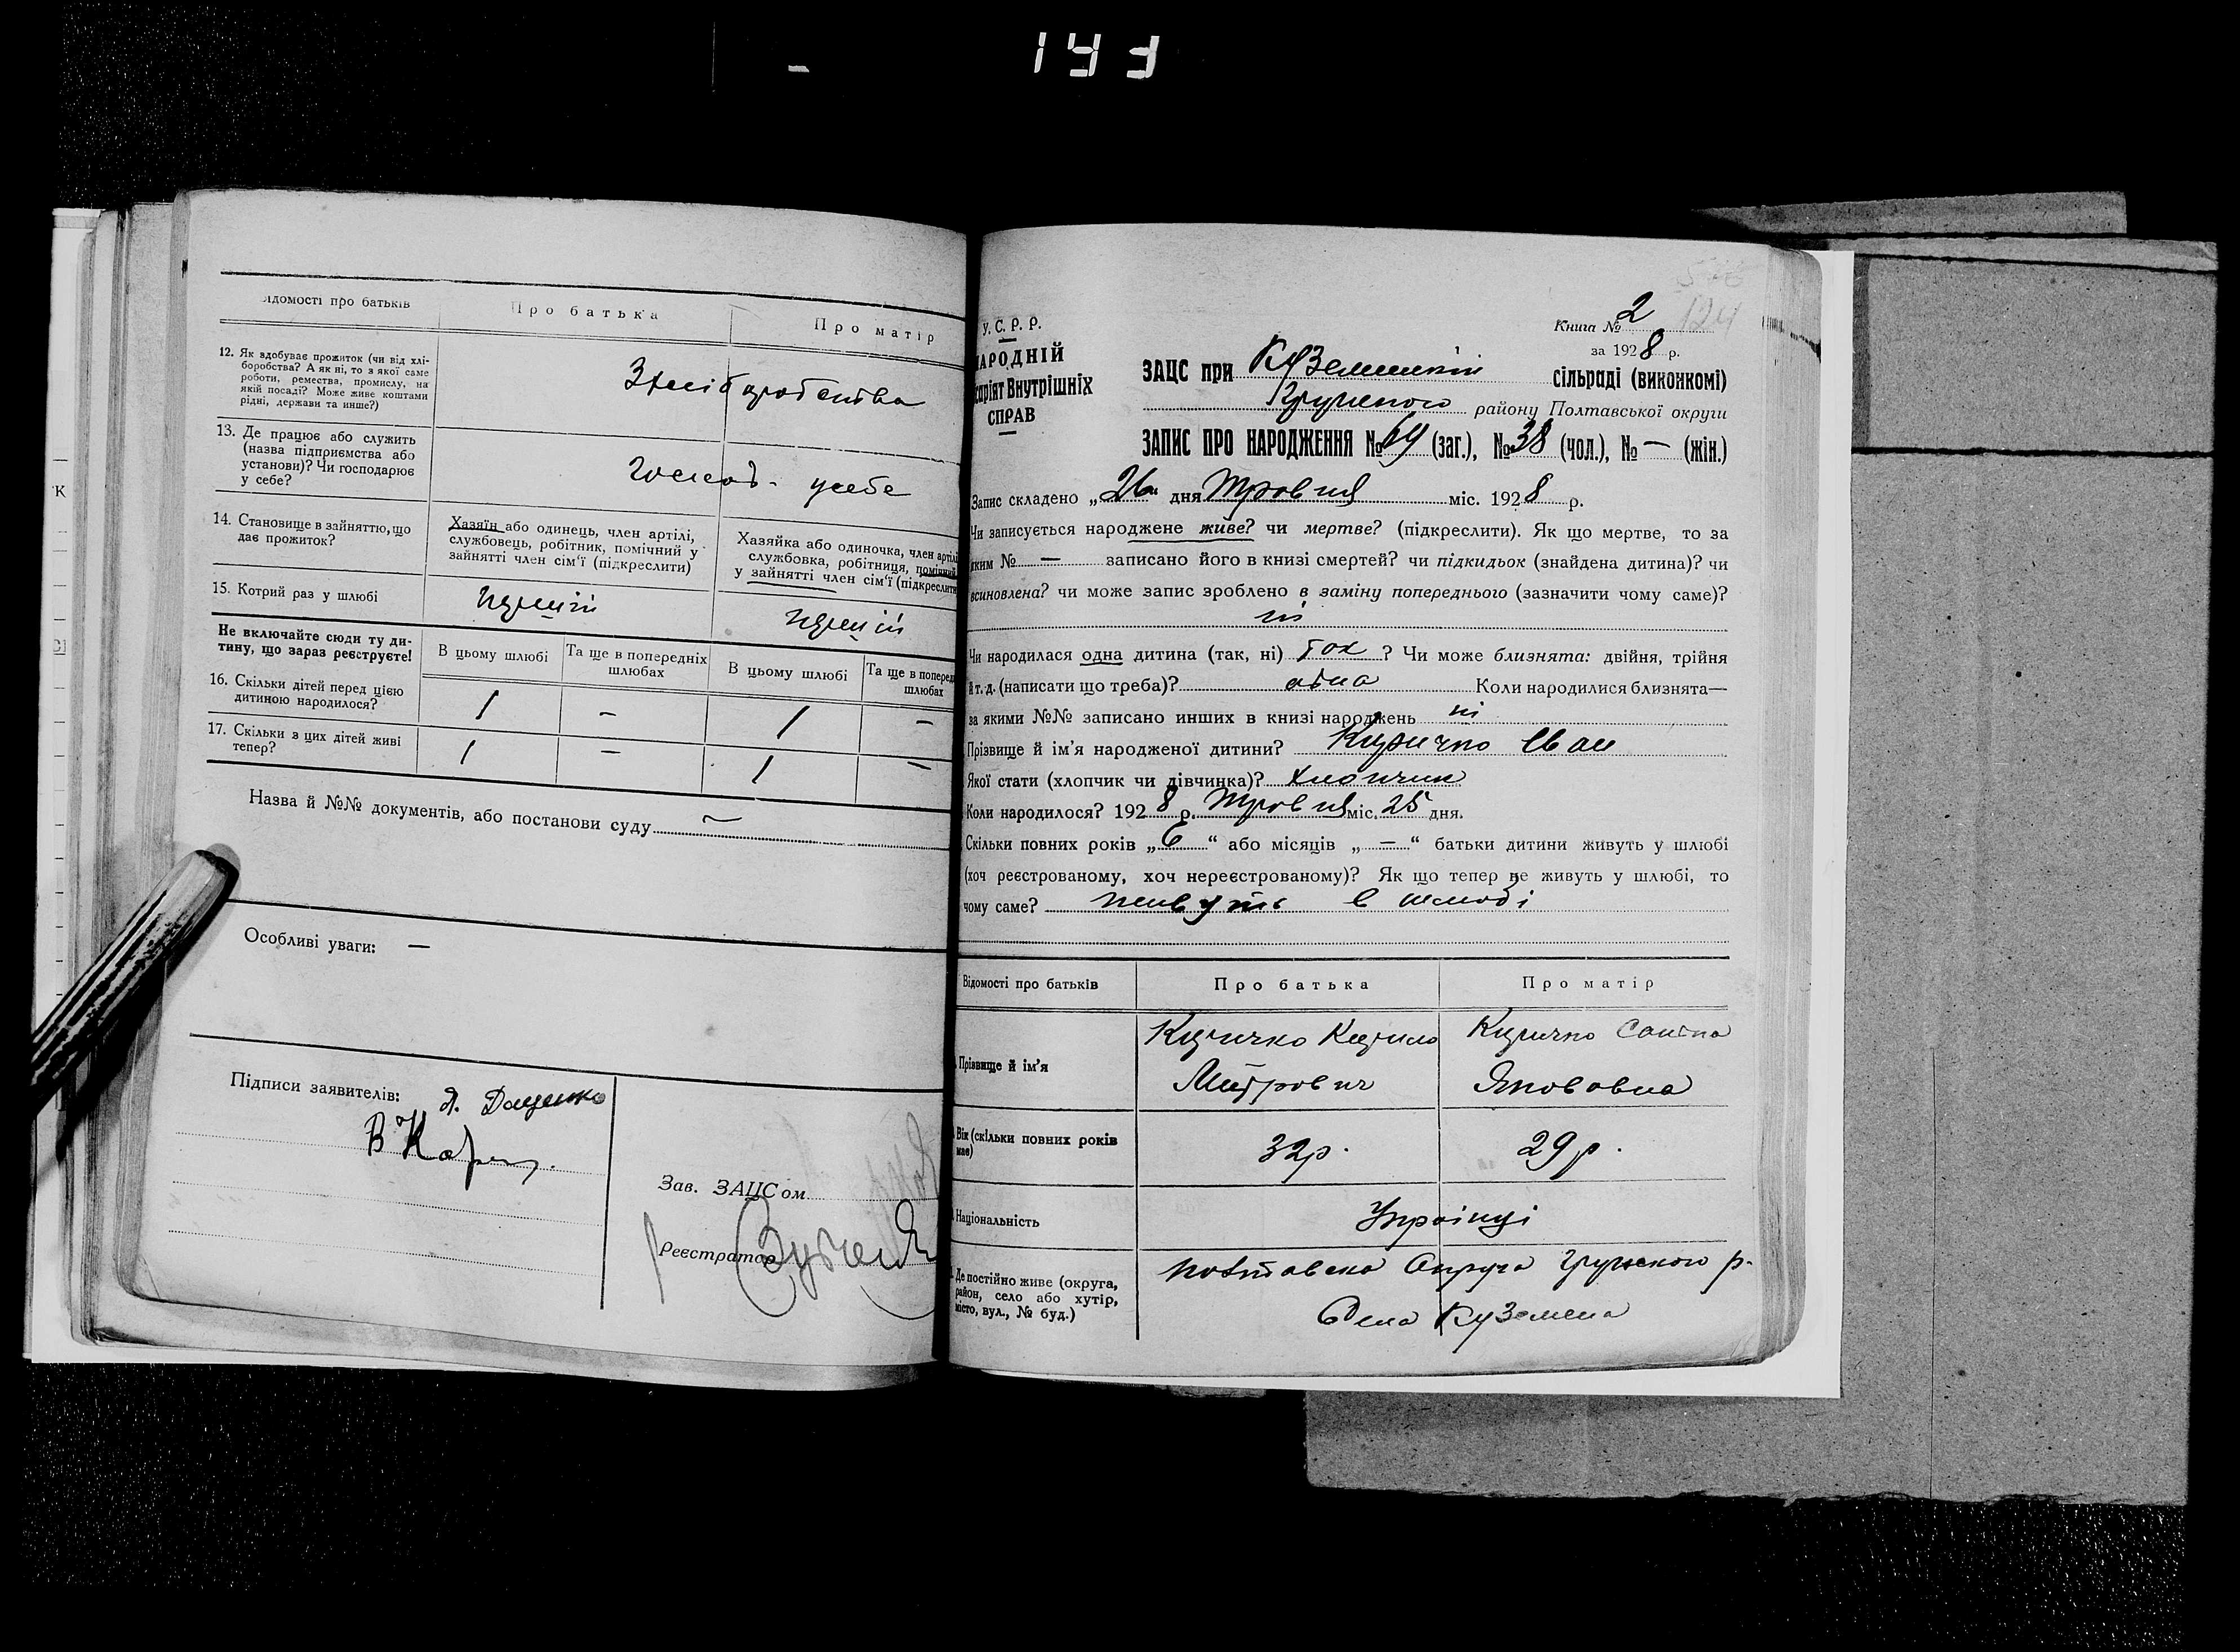 143
ідомості про батьків
Про батька
Про матір
12. Як здобуває прожиток (чи від хлі-
боробства? А як ні, то з якої саме
роботи, ремества, промислу, на
якій посаді? Може живе коштами
рідні, держави та инше?)
З хліборобства
13. Де працює або служить
(назва підприємства або
установи)? Чи господарює
у себе?
Господ. у себе
14. Становище в зайняттю, що
дає прожиток?
Хазяїн або одинець, член артілі,
службовець, робітник, помічний у
зайнятті член сім'ї (підкреслити)
Хазяйка або одиночка, член артілі
службовка, робітниця, помічний
у зайнятті член сім'ї (підкреслити
15. Котрий раз у шлюбі
перший
перший
Не включайте сюди ту ди-
тину, що зараз реєструєте!
В цьому шлюбі
Та ще в попередніх
шлюбах
В цьому шлюбі
Та ще в поперед
шлюбах
16. Скільки дітей перед цією
дитиною народилося?
1 – 1 –
17. Скільки з цих дітей живі
тепер?
1 – 1 –
Назва й №№ документів, або постанови суду –
Особливі уваги: –
Підписи заявителів: Я. Доценко
Зав. ЗАЦСом
Реєстратор
У. С. Р. Р.
АРОДНІЙ
Внутрішніх
СПРАВ
Книга № 2
124
за 1928 р.
ЗАЦС при Куземинскій сільраді (виконкомі)
Грунского району Полтавської округи
ЗАПИС ПРО НАРОДЖЕННЯ № 64 (заг.), № 38 (чол.), № — (жін.)
Запис складено „26" дня Травня міс. 1928 р.
Чи записується народжене живе? чи мертве? (підкреслити). Як що мертве, то за
яким № — записано його в книзі смертей? чи підкидьок (знайдена дитина)? чи
всиновлена? чи може запис зроблено в заміну попереднього (зазначити чому саме)?
ні
Чи народилася одна дитина (так, ні) Так? Чи може близнята: двійня, трійня
й т. д. (написати що треба)? одна Коли народилися близнята—
за якими №№ записано инших в книзі народжень ні
Прізвище й ім'я народженої дитини? Киричко Иван
Якої стати (хлопчик чи дівчинка)? хлопчик
Коли народилося? 1928 р. Травня міс. 25 дня.
Скільки повних років „6" або місяців „—" батьки дитини живуть у шлюбі
(хоч реєстрованому, хоч нереєстрованому)? Як що тепер не живуть у шлюбі, то
чому саме? живуть в шлюбі
Відомості про батьків
Про батька
Про матір
Прізвище й ім'я
Киричко Кирило
Митрович
Киричко
Якововна
Вік (скільки повних років
має)
32р.
29р.
Національність
Українці
Де постійно живе (округа,
район, село або хутір,
місто, вул., № буд.)
Полтавска Округа Грунского р.
Села Куземена